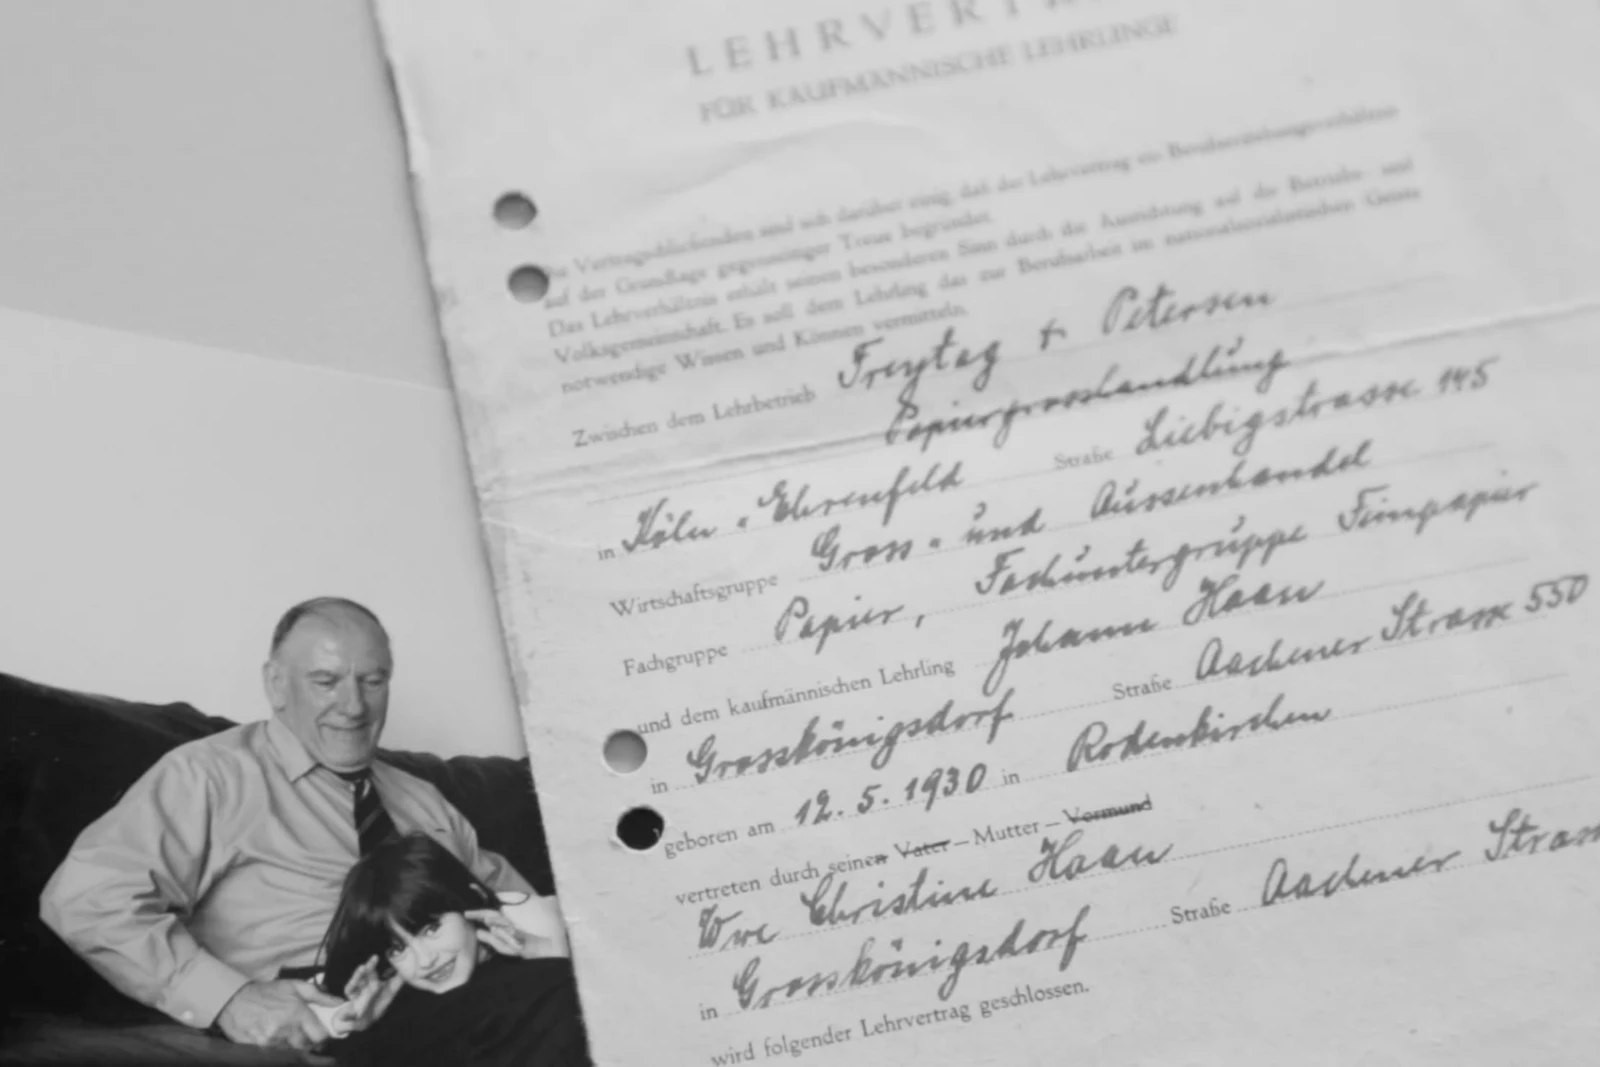 LEHRVERTR
FÜR KAUFMÄNNISCHE LEHRLINGE
Die Vertragschließenden sind sich darüber einig, daß das Lehrvertrag ein Berufserziehungsverhältnis
auf der Grundlage gegenseitiger Treue begründet.
Das Lehrverhältnis erhält seinen besonderen Sinn durch die Ausrichtung auf die Betriebs- und
Volksgemeinschaft. Es soll dem Lehrling das zur Berufsarbeit im nationalsozialistischen Geiste
notwendige Wissen und Können vermitteln.
Zwischen dem Lehrbetrieb Freytag + Petersen
Papiergrosshandlung
in Köln-Ehrenfeld Straße Liebigstrasse 145
Wirtschaftsgruppe Gross- und Aussenhandel
Fachgruppe Papier, Fachuntergruppe Feinpapier
und dem kaufmännischen Lehrling Johann Haan
in Grosskönigsdorf Straße Aachener Strasse 550
geboren am 12.5.1930 in Rodenkirchen
vertreten durch seinen Vater – Mutter – Vormund
Wwe Christine Haan
in Grosskönigsdorf Straße Aachener Strass
wird folgender Lehrvertrag geschlossen.